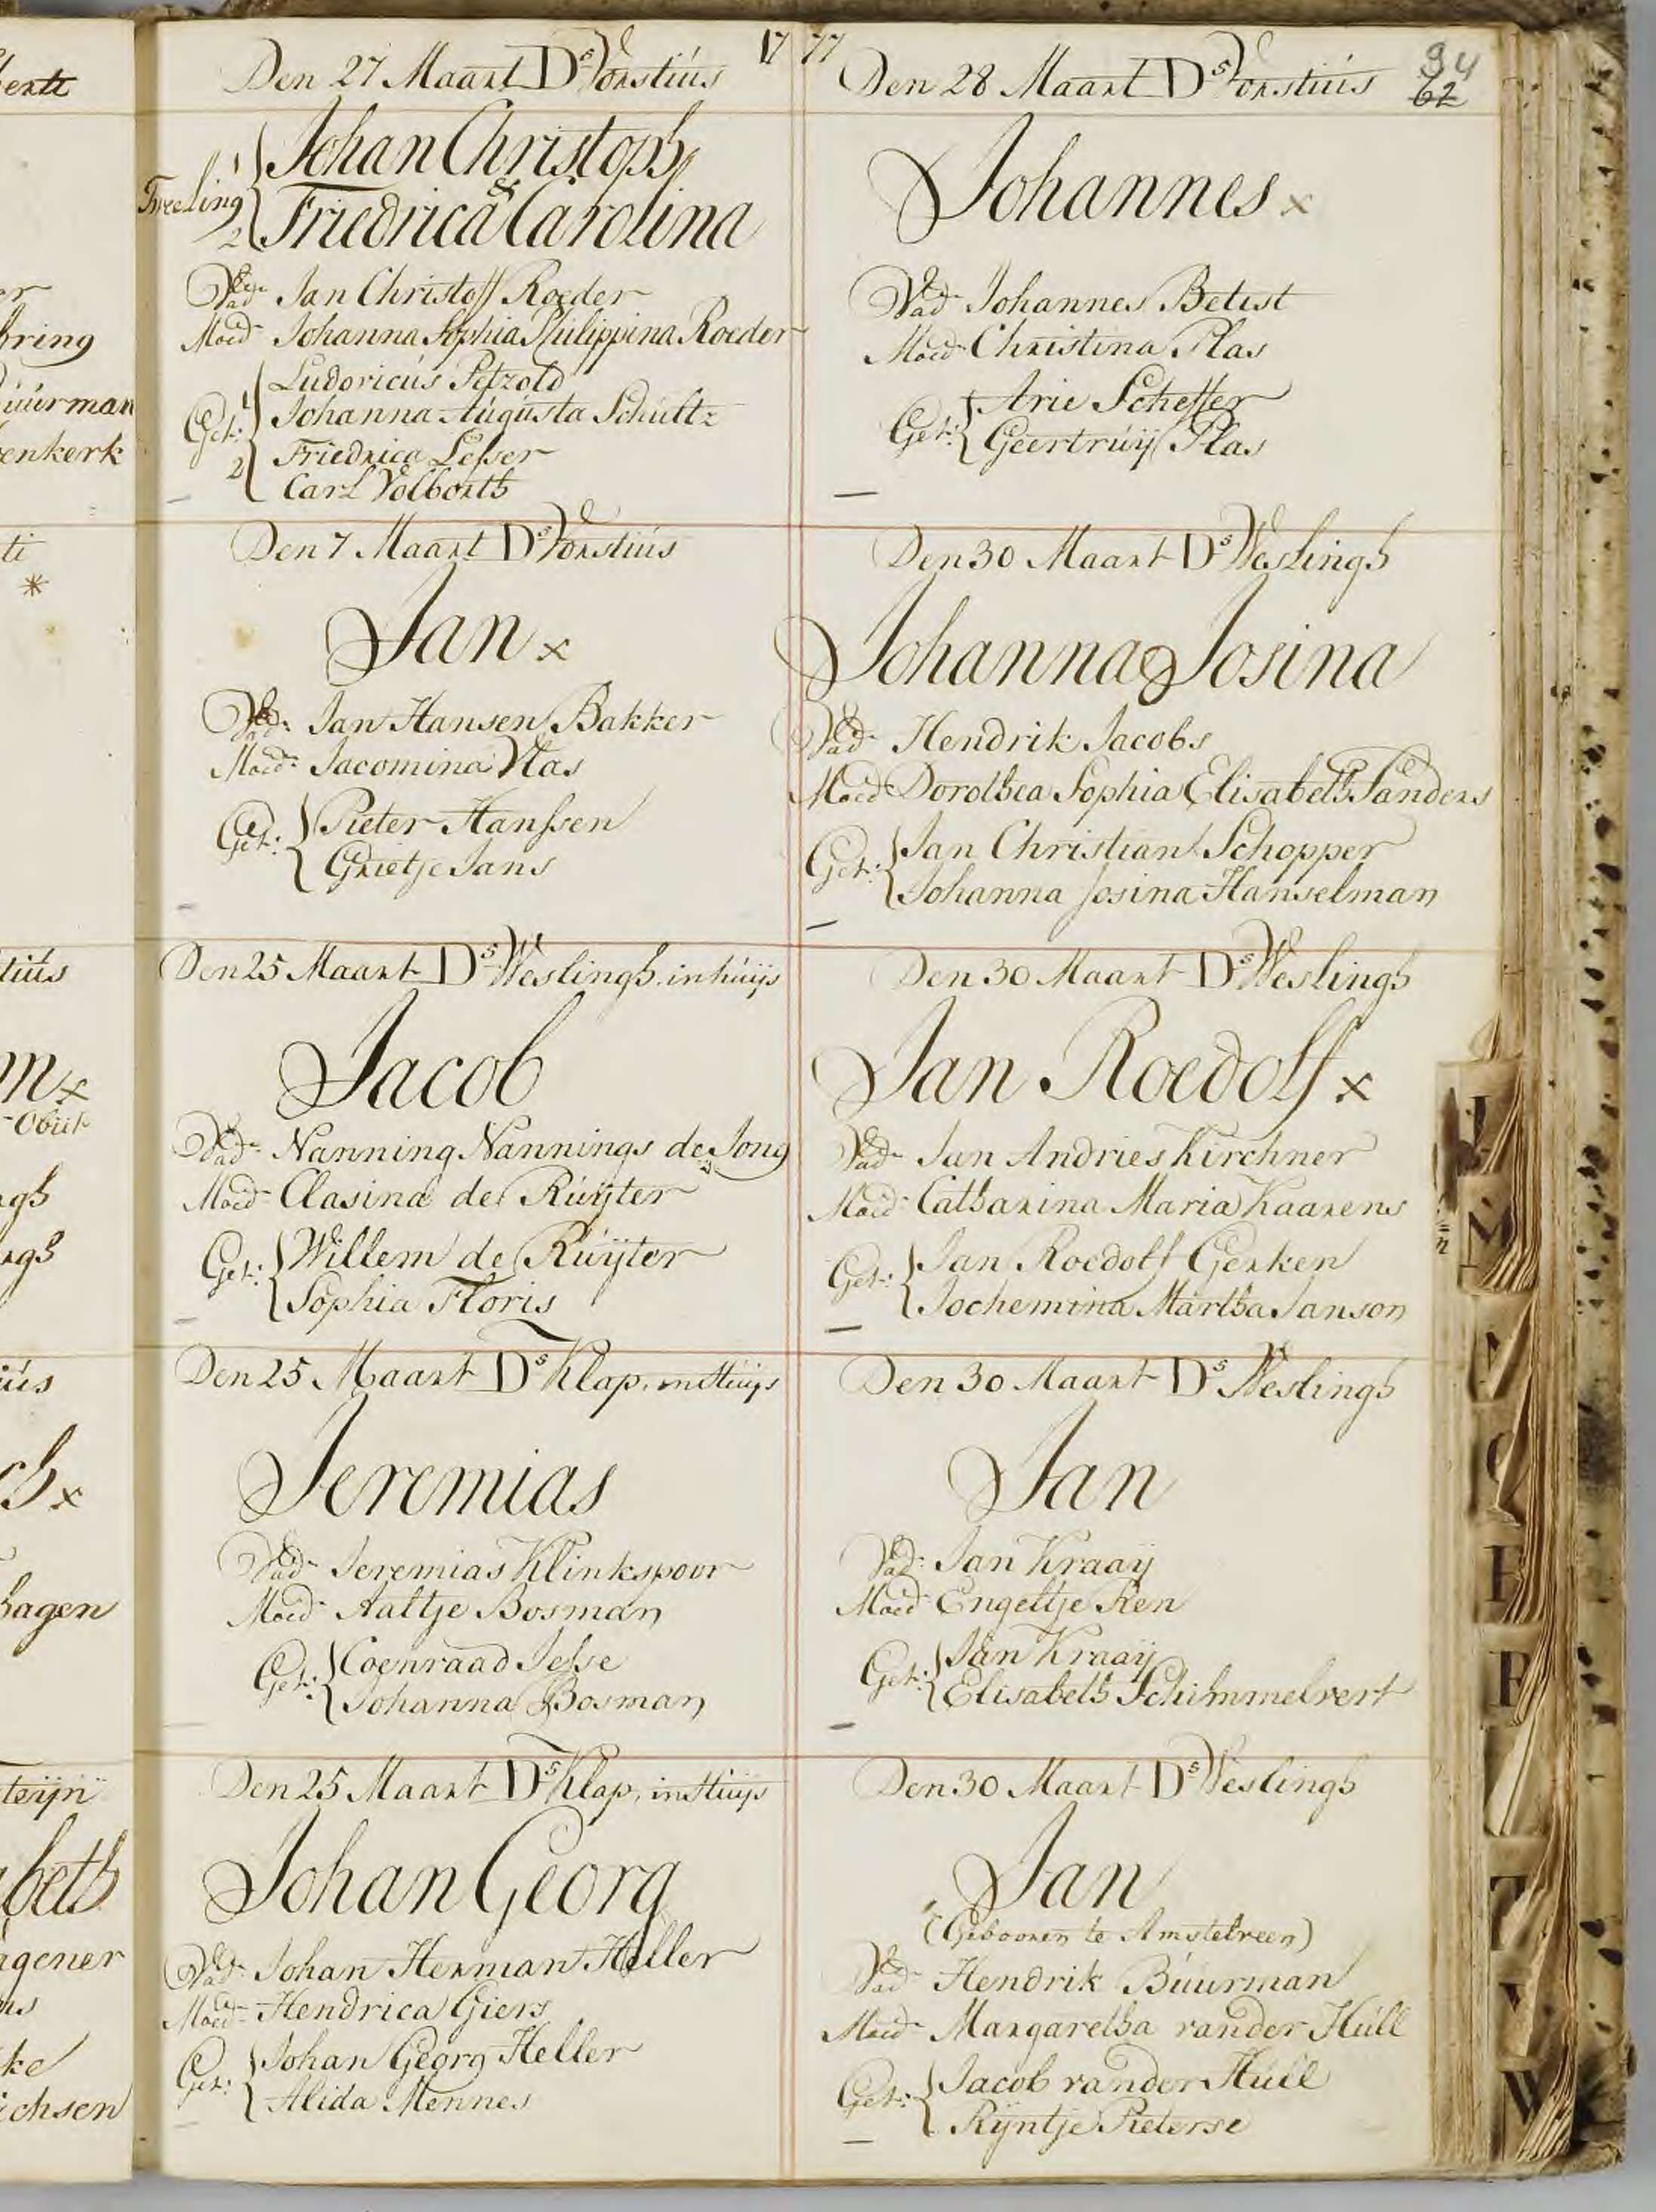 1777
94
62
Den 27 Maart Ds Vorstius
Tweeling
1 Johan Christoph
&
2 Friedrica Carolina
Vad: Jan Christoff Roeder
Moed: Johanna Sophia Philippina Roeder
Get: 1 Ludovicus Petzold
Johanna Augusta Schultz
2 Friedrica Lesser
Carl Volborth
Den 7 Maart Ds Vorstius
Jan x
Vad: Jan Hansen Bakker
Moed: Jacomina Vlas
Get: Pieter Hanssen
Grietje Jans
Den 25 Maart Ds Weslingh, in huijs
Jacob
Vad: Nanning Nannings de Jong
Moed: Clasina de Ruijter
Get: Willem de Ruijter
Sophia Floris
Den 25 Maart Ds Klap, in Huijs
Jeremias
Vad: Jeremias Klinkspoor
Moed: Aaltje Bosman
Get: Coenraad Jesse
Johanna Bosman
Den 25 Maart Ds Klap, in Huijs
Johan Georg
Vad: Johan Herman Heller
Moed: Hendrica Giers
Get: Johan Georg Heller
Alida Mennes
Den 28 Maart Ds Vorstius
Johannes x
Vad: Johannes Betist
Moed: Christina Plas
Get: Arie Scheffer
Geertruij Plas
Den 30 Maart Ds Weslingh
Johanna Josina
Vad: Hendrik Jacobs
Moed: Dorothea Sophia Elisabeth Sanders
Get: Jan Christian Schopper
Johanna Josina Hanselman
Den 30 Maart Ds Weslingh
Jan Roedolf x
Vad: Jan Andries Kirchner
Moed: Catharina Maria Kaarens
Get: Jan Roedolf Gerken
Jochemina Martha Janson
Den 30 Maart Ds Weslingh
Jan
Vad: Jan Kraaij
Moed: Engeltje Ren
Get: Jan Kraaij
Elisabeth Schimmelvert
Den 30 Maart Ds Weslingh
Jan
(Gebooren te Amstelveen)
Vad: Hendrik Buurman
Moed: Margaretha vander Hull
Get: Jacob vander Hull
Rijntje Pieterse